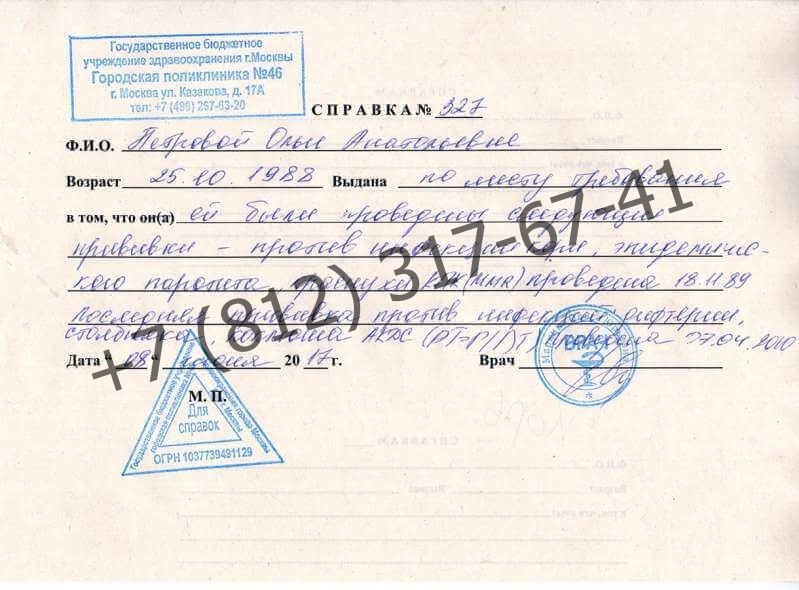 Государственное бюджетное
учреждение здравоохранения г.Москвы
Городская поликлиника №46
г. Москва ул. Казакова, д. 17А
тел: +7 (495) 267-63-20
СПРАВКА № 327
Ф.И.О. Петровой Ольге Анатольевне
Возраст 25.10.1988 Выдана по месту требования
в том, что он(а) ей были проведены следующие
прививки – против инфекции кори, эпидемичес-
кого паротита, краснухи КПК (MMR) проведена 18.11.89
Последняя прививка против инфекций дифтерии,
столбняка, коклюша АКДС проведена 27.04.2010
Дата "08" июня 2017 г. Врач
М. П.
Для
справок
ОГРН 1037739491129
ВРАЧ
+7 (812) 317-67-41